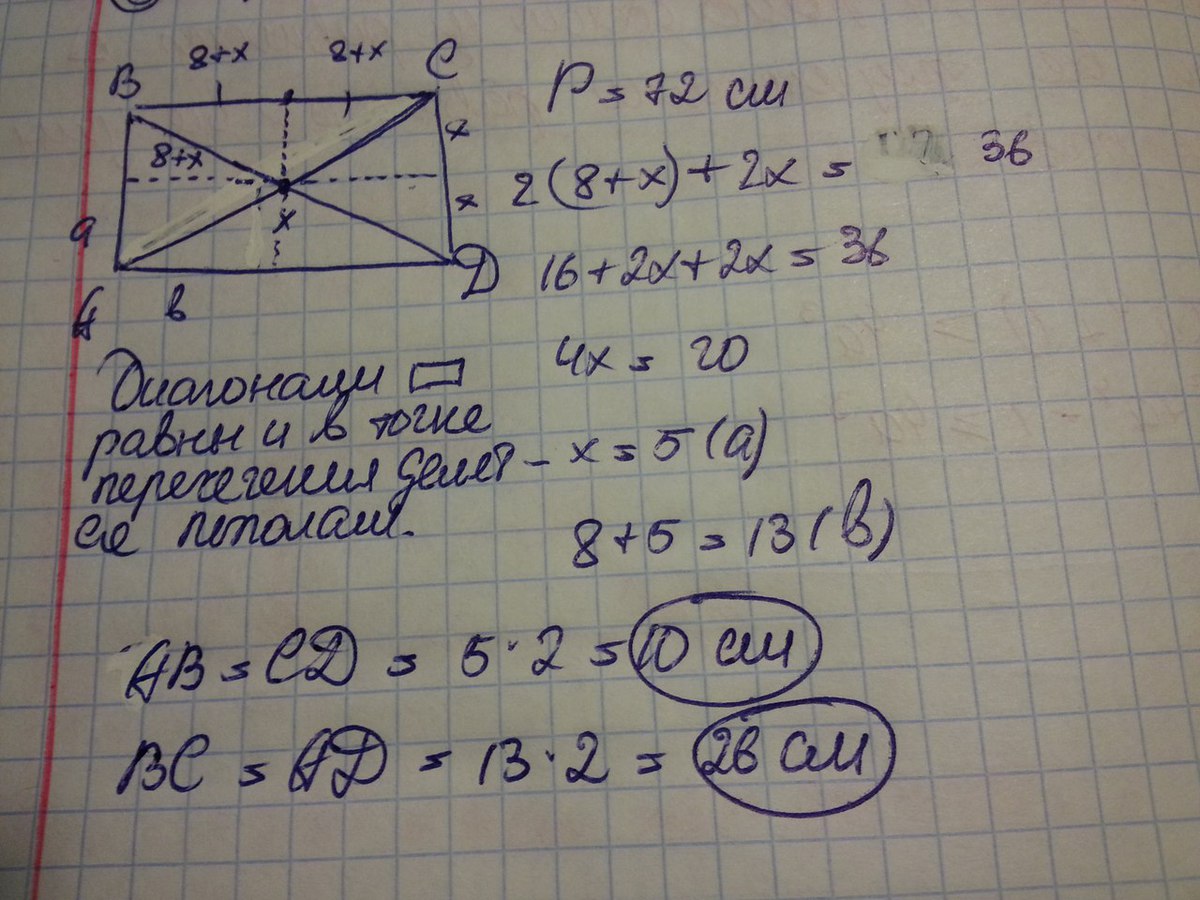 8+x 8+x
B C
x
8+x
x
a x
A в D
P = 72 см
2(8+x)+2x = 36
16+2x+2x = 36
4x = 20
x = 5 (a)
8+5 = 13 (в)
Диагонали
равны и в точке
пересечения делят-
ся пополам.
AB = CD = 5·2 = 10 см
BC = AD = 13·2 = 26 см